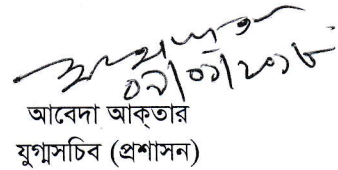 ০৯/০১/২০১৮
আবেদা আক্তার
যুগ্মসচিব (প্রশাসন)